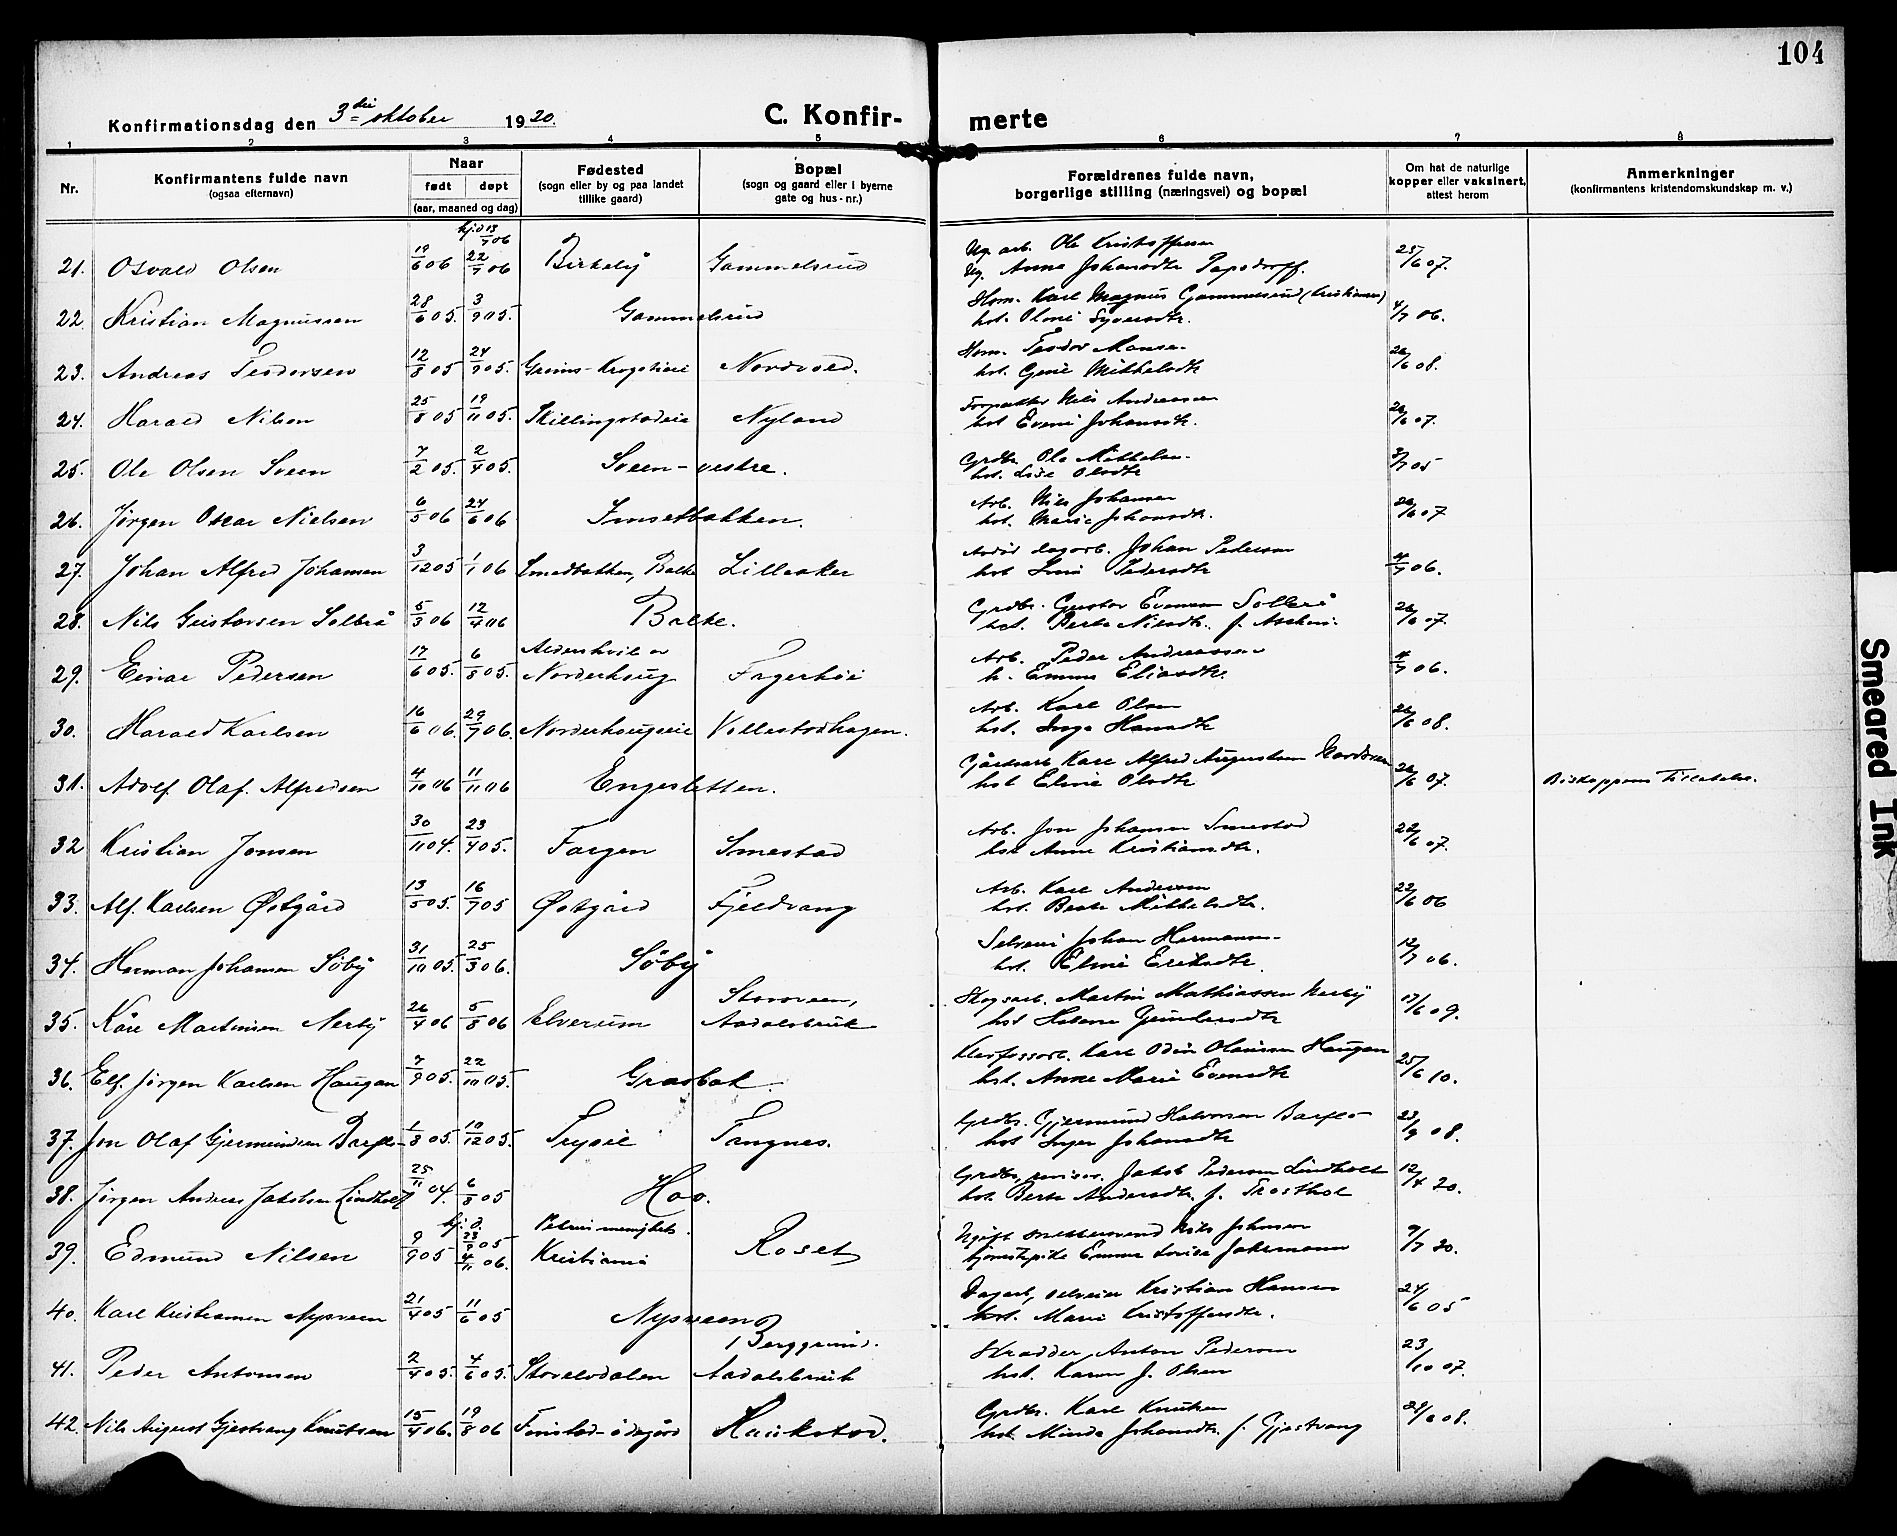 104
Konfirmationsdag den 3die oktober 1920.
C. Konfir-
merte
1 2 3 4 5 6 7 8
Nr.
Konfirmantens fulde navn
(ogsaa efternavn)
Naar
født døpt
(aar, maaned og dag)
Fødested
(sogn eller by og paa landet
tillike gaard)
Bopæl
(sogn og gaard eller i byerne
gate og hus-nr.)
Forældrenes fulde navn,
borgerlige stilling (næringsvei) og bopæl
Om hat de naturlige
kopper eller vaksinert,
attest herom
Anmerkninger
(konfirmantens kristendomskundskap m. v.)
21. Osvald Olsen 19/6 06 hj.d. 13/7 06 22/7 06 Birkely Gammelsrud Ug. arb. Ole Kristoffersen
Ug. Anna Johansdtr. 25/6 07.
22. Kristian Magnussen 28/6 05. 3/9 05. Gammelsrud Hsm. Karl Magnus Gammelsrud (Kristiansen)
hst. Oline Syversdtr. 4/7 06.
23. Andreas Teodorsen 12/8 05 24/9 05. Nordvold. Hsm. Teodor
hst. Mikkelsdtr. 26/6 08.
24. Harald Nilsen 25/8 05 19/11 05. Skillingstadeie Nyland Forpakter Nils Andreassen
hst Eveni Johansdtr. 26/6 07.
25. Ole Olsen Sveen 7/2 05. 2/4 05. Sveen-vestre. Grdbr. Ole Mikkelsen
hst. Lise Olsdtr 3/7 05
26. Jørgen Oskar Nielsen 6/5 06 24/6 06 Imsetbakken. Arb. Nils Johansen
hst. Marie Johansdtr. 26/6 07
27. Johan Alfred Johansen 3/12 05 1/1 06 Smedbakken, Balke Lilleaker dagarb. Johan Pedersen
hst Pedersdtr 4/7 06.
28. Nils Gustavsen Solberg 5/3 06 12/4 06 Balke. Grdbr. Gustav Evensen
hst. Berte Nilsdtr. f. 26/6 07.
29. Einar Pedersen 17/6 05. 6/8 05. Aldershvile
Norderhoug Fagerhøi Arb. Peder Andreassen
h. Emma Eliasdtr. 4/7 06.
30. Harald Karlsen 16/6 06. 29/7 06. Norderhougseie Vollestadhagen. Arb. Karl Olsen
hst. Inga Hansdtr 26/6 08.
31. Adolf Olaf Alfredsen 4/10 06 11/11 06 Engesletten. Gårdsarb Karl Alfred Augustsen
hst Eline Olsdtr 26/6 07. Biskoppens tilladelse.
32 Kristian Jonsen 30/11 04. 23/4 05. Fargen Smestad Arb. Jon Johansen Smestad
hst Anne Kristiansdtr. 22/6 07.
33. Alf. Karlsen Østgård 13/5 05. 16/7 05 Østgård Fjeldvang Arb. Karl Andersen
hst. Berte Mikkelsdtr. 22/6 06
34. Herman Johansen Söby 31/10 05. 25/3 06. Söby Selveier Johan Hermans-
hst. Eline Eriksdtr. 12/7 06.
35. Kåre Martinsen Nerby 26/4 06 5/8 06 Elverum Storsveen,
Aadalsbruk Skogsarb. Martin Mathiassen Nerby
hst Helene Gundersdtr 17/6 09.
36. Elf. Jørgen Karlsen Haugan 7/9 05. 22/10 05. Grasbak Karl Odin Olaussen Haugan
hst. Anne Marie Evensdtr 25/6 10.
37. Jon Olaf Gjermundsen Barflo 1/8 05. 10/12 05. Trysil Tangnes. Grdbr. Gjermund Halvorsen Barflo
hst Inger Johansdtr 23/9 08.
38. Jørgen Andreas Jakobsen Lindholt 25/11 04. 6/8 05 Hoo. Grdbr. Jakob Pedersen Lindholt
hst. Berte Andersdtr. f. Frosthol 12/4 20.
39. Edmund Nilsen 9/9 05. hj. d. 23/9 05 4/11 06. Petrus menighet.
Kristiania Roset Ugift Nils Johnsen
tjenestepike Emma Lovise 9/7 20.
40. Karl Kristiansen Nysveen 21/4 05 11/6 05 Nysveen Dagarb, selveier Kristian Hansen
hst. Marie Kristoffersdtr. 24/6 05
41. Peder Antonsen 2/4 05. 4/6 05. Stovelsdalen Berggrund.
Aadalsbruk Skrædder Anton Pedersen
hst. Karen J. Olsen 23/10 07.
42. Nils August Gjestvang Knutsen 15/4 06. 19/8 06 Finstad-ödegård Huikstad. Grdbr. Karl Knutsen
hst. Minda Johansdtr. f. Gjestvang 24/6 08.
Smeared Ink